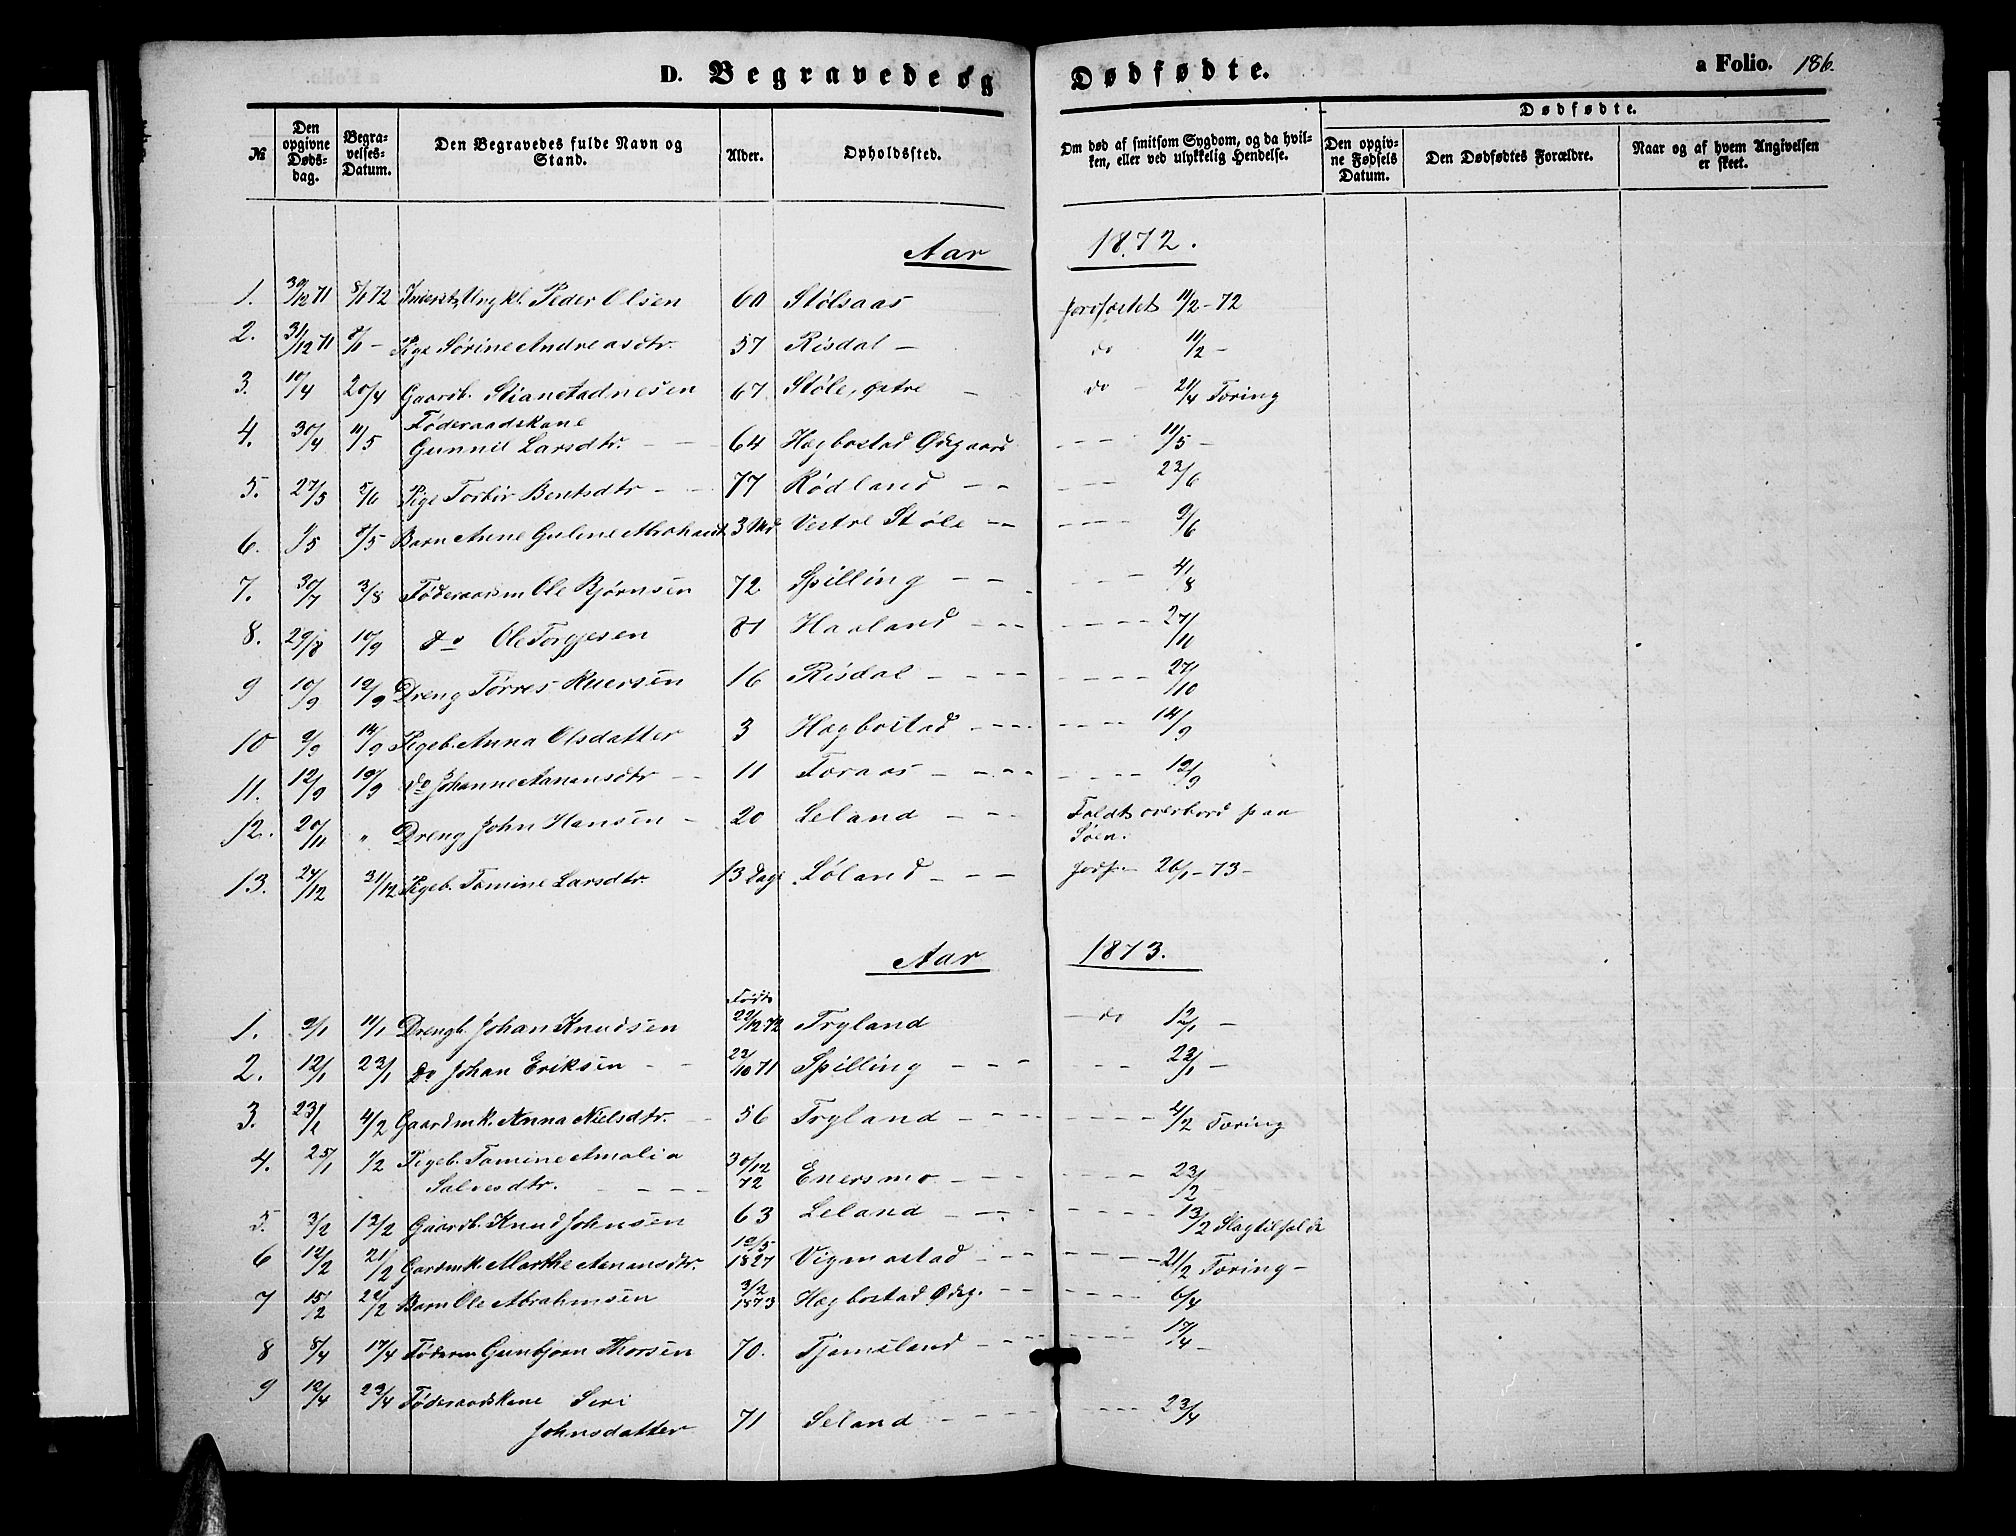 D. Begravede og Dødfødte. a Folio. 186.
Dødfødte.
№ Den opgivne Døds-dag. Begra-velses-Datum. Den Begravedes fulde Navn og Stand. Alder. Opholdssted. Om død af smitsom Sygdom, og da hvil-ken, eller ved ulykkelig Hendelse. Den opgiv-ne Fødsels Datum. Den Dødfødtes Forældre. Naar og af hvem Angivelsen er skeet.
Aar 1872.
1. 30/12 71 8/1 72 Ungkl. Peder Olsen 60 Stølsaas jordfæstet 11/2-72
2. 31/12 71 8/1 - Pige Sørine Andreasdtr. 57 Risdal - do 11/2 -
3. 10/4 20/4 Gaardb. Stian Stadnesen 67 Støle, østre - do - 21/4 Tæring
4. 30/4 11/5 Føderaadskone
Gunnil Larsdtr. - - 64 Hægbostad Ødegaard - - - 11/5 -
5. 27/5 5/6 Pige Torbir Bentsdtr - - 77 Rødland - - - - - 23/6
6. 1/5 8/5 Barn Anne Guline 3 Md Vestre Støle - - - - - - 9/6
7. 30/7 3/8 Føderaadsm Ole Bjørnsen 72 Spilling - - - - - - 4/8
8. 29/8 10/9 do Ole Torgjesen 81 Haaland - - - - - - - 27/10
9 10/9 19/9 Dreng Tørres 16 Risdal - - - - - - - - 27/10
10 9/9 14/9 Pigeb. Anna Olsdatter 3 Hægbostad - - - - - - - 14/9
11. 12/9 19/9 do Johanne Aanansdtr - - 11 Foraas - - - - - - - - 19/9
12. 20/11 " Dreng John Hansen - 20 Leland - - - Faldt overbord paa
Søen.
13. 24/12 31/12 Pigeb. Tomine Larsdtr. 13 Dage Løland - - - 26/1-73-
Aar 1873.
Født
1. 9/1 11/1 Drengb. Johan Knudsen 29/12 72 Tryland - do 12/1 -
2. 12/1 23/1 do Johan Eriksen - - 23/10 71 Spilling - - - - - - 23/1 -
3. 23/1 4/2 Gaardmk. Anna Nielsdtr. - 56 Tryland - - - - - - 4/2 Tæring
4. 25/1 1/2 Pigeb. Tomine Amalia
Salvesdtr. - - - - 30/12 72 Enersmo - - - - - - 23/2 -
5. 3/2 12/2 Gaardb. Knud Johnsen 63 Leland - - - - - - - 13/2 Slagtilfælde
6 12/2 21/2 Gardmk. Marthe Aanansdtr. 19/5 1827 Vigmostad - - - - - - - 21/2 Tæring -
7 15/2 22/2 Barn Ole Abrahmsen 3/2 1873 Hægbostad Ødeg. - - - - - - 6/4
8 8/4 17/4 Føderm Gunbjørn Thorsen 70. Tjomsland - - - - - - - 17/4 -
9 12/4 23/4 Føderaadskone Siri
Johnsdatter 71 Seland - - - - - - - 23/4